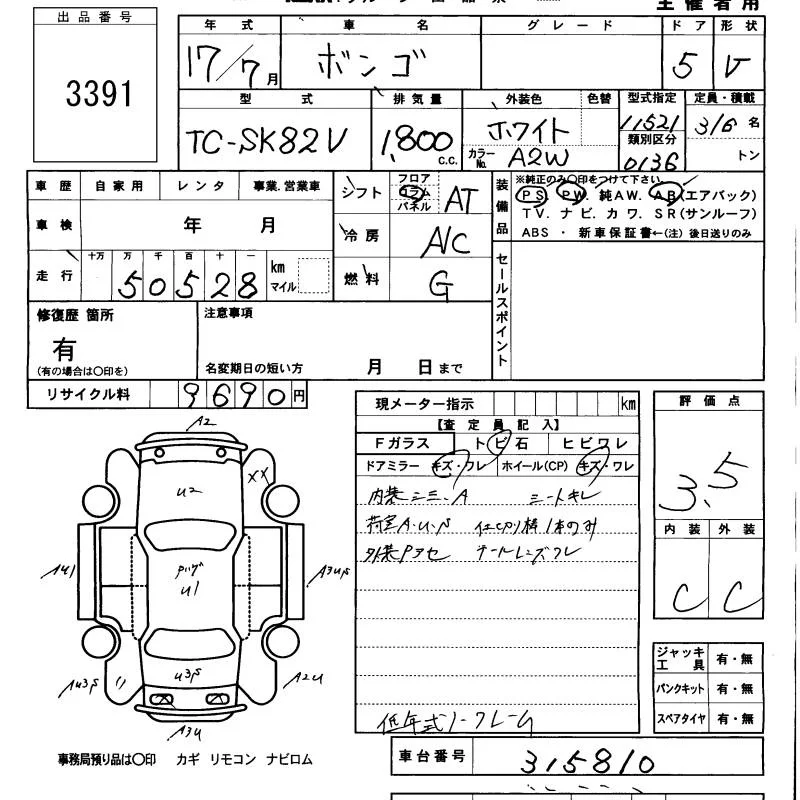 出品番号
3391
主催者用
年式 車名 グレード ドア 形状
17/7月 ボンゴ 5 V
型式 排気量 外装色 色替 型式指定 定員・積載
TC-SK82V 1,800 c.c. ホワイト 11521 3/6 名
カラーNo. A2W 類別区分 0136 トン
車歴 自家用 レンタ 事業.営業車
車検 年 月
走行 十万 万 千 百 十 一 km マイル
50528
シフト フロア コラム パネル AT
冷房 A/C
燃料 G
装備品
※純正のみ○印をつけて下さい。
PS. PW. 純AW. AB(エアバック)
TV. ナビ. カワ. SR(サンルーフ)
ABS ・ 新車保証書←(注) 後日送りのみ
セールスポイント
修復歴 箇所
有
(有の場合は○印を)
注意事項
名変期日の短い方 月 日まで
リサイクル料 9690円
現メーター指示 km
【査定員記入】
Fガラス トビ石 ヒビワレ
ドアミラー キズ・ワレ ホイール(CP) キズ・ワレ
内装シミ、A シートキレ
荷室A・U・S 仕切り棒1本のみ
外装Pアセ テールレンズワレ
低年式ノークレーム
評価点
3.5
内装 外装
C C
ジャッキ工具 有・無
パンクキット 有・無
スペアタイヤ 有・無
A2
U2
XX
Pハゲ
U1
AU1
A3US
U3S
AU3S
A2U
A3U
事務局預り品は○印 カギ リモコン ナビロム
車台番号 315810